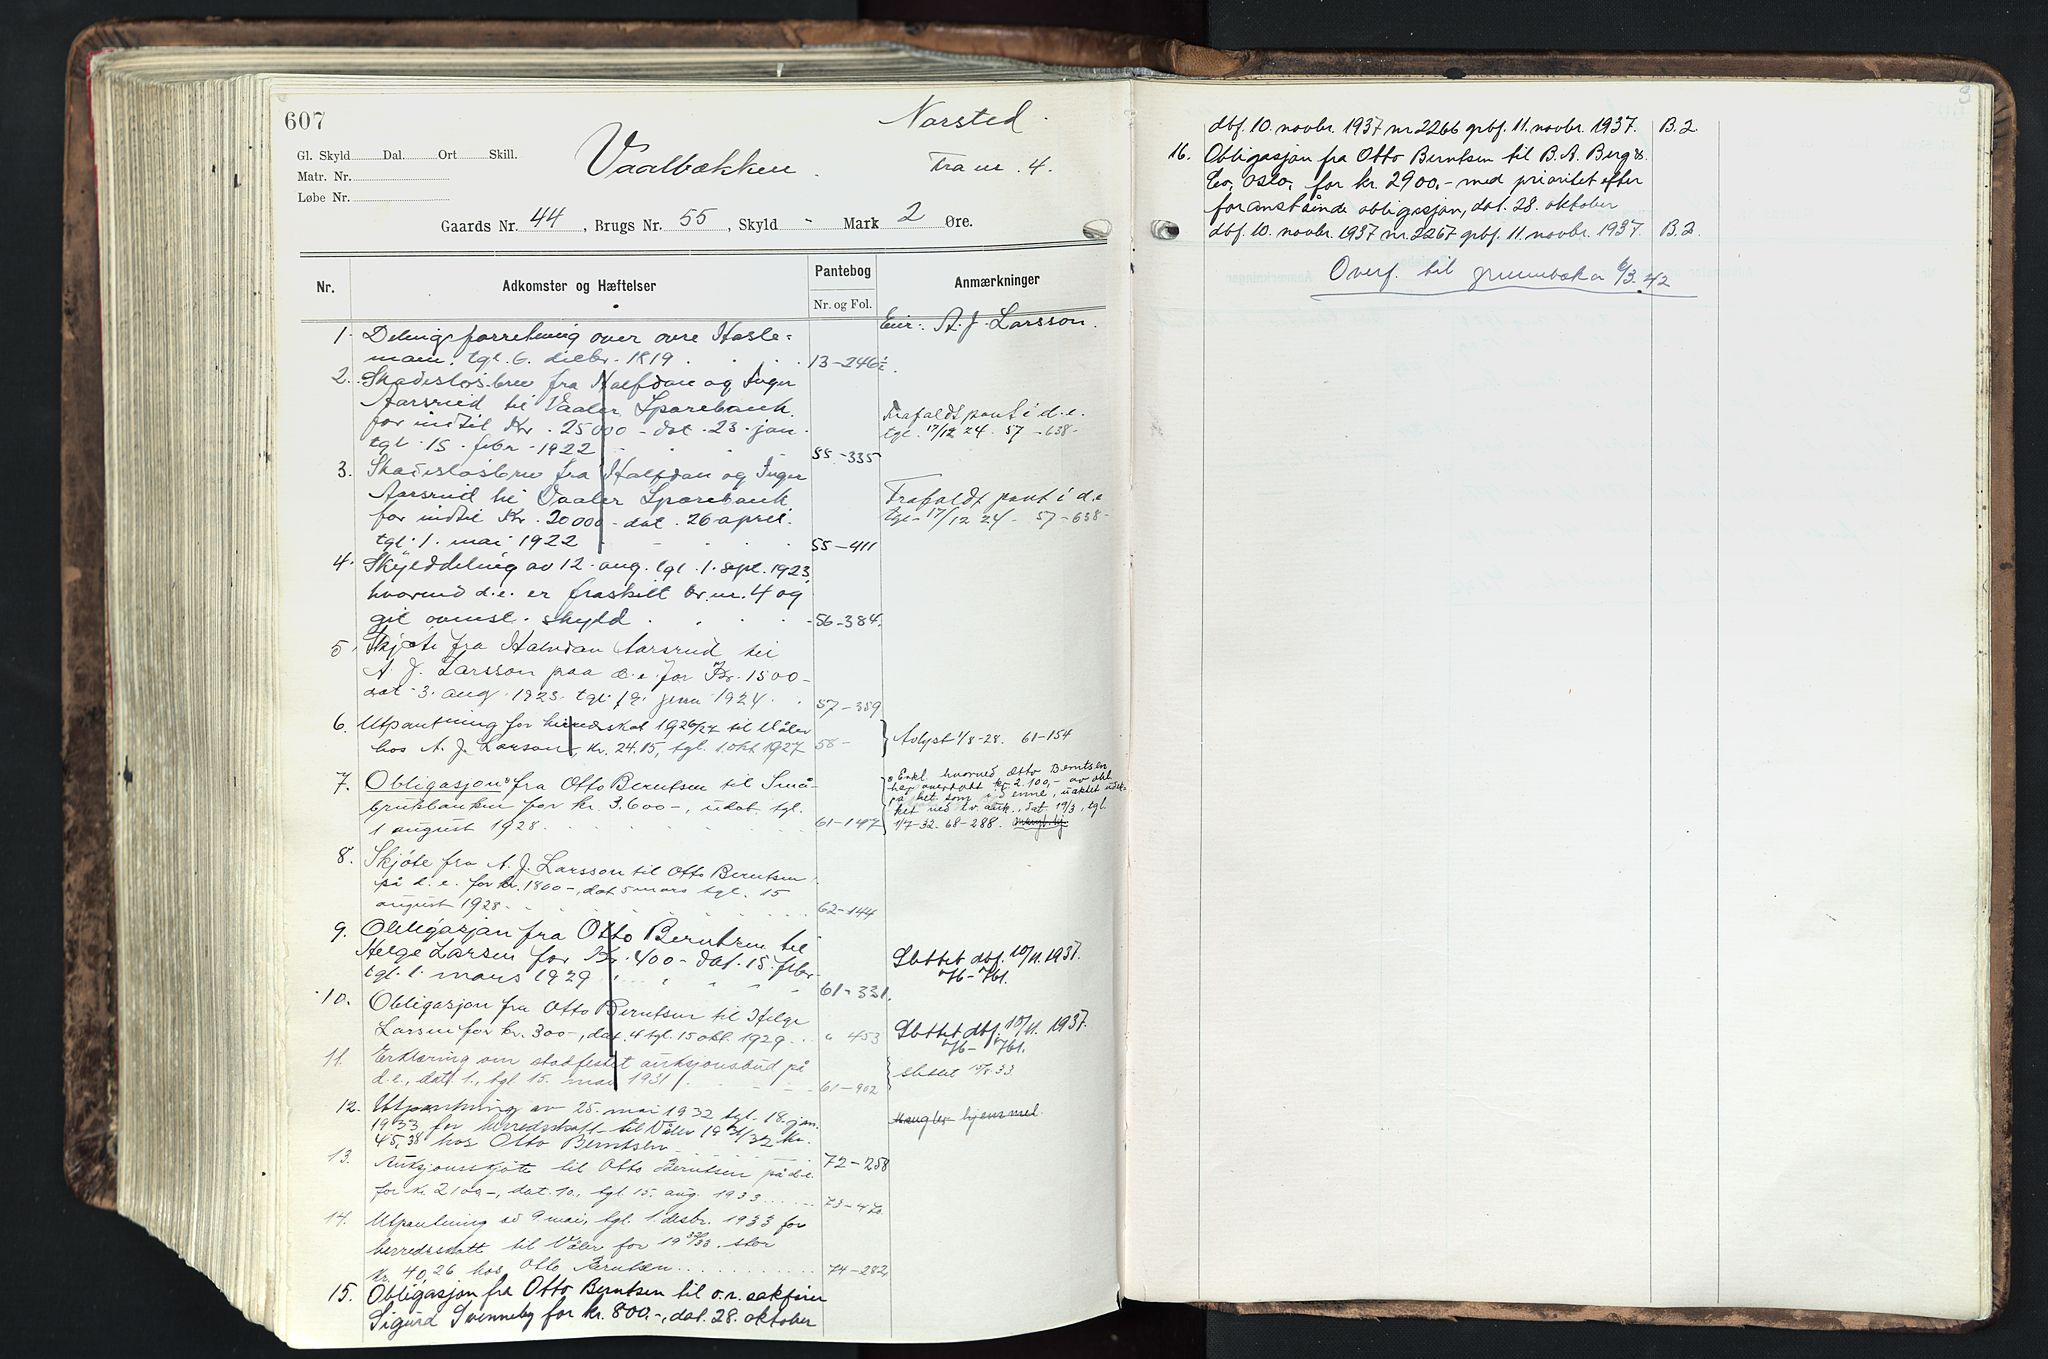 607
Norsted.
Gl. Skyld Dal. Ort Skill.
Matr. Nr.
Løbe Nr.
Vaalbækken.
Fra nr. 4.
Gaards Nr. 44, Brugs Nr. 55, Skyld - Mark 2 Øre.
Nr. Adkomster og Hæftelser Pantebog Nr. og Fol. Anmærkninger
Eier: A. J. Larsson.
1. Delingsforretning over øvre Hasle-
moen. tgl. 6. decbr. 1819. 13-246½.
2. Skadesløsbrev fra Halfdan og Inger
Aarsrud til Vaaler Sparebank
for indtil Kr. 25000 - dat. 23. jan.
tgl. 15. febr. 1922 55-335
Frafaldt pant i d.e.
tgl. 17/12 24. 57-638-
3. Skadesløsbrev fra Halfdan og Inger
Aarsrud til Vaaler Sparebank
for indtil Kr. 20000 - dat. 26 april.
tgl. 1. mai 1922 55-411
Frafaldt pant i d.e
tgl. 17/12 24. 57-638-
4. Skylddeling av 12. aug. tgl. 1. sept. 1923,
hvorved d.e. er fraskilt br. nr. 4 og
git ovenst. skyld 56-384.
5. Skjøte fra Halvdan Aarsrud til
A J. Larsson paa d.e. for Kr. 1500-
dat. 3. aug. 1923. tgl. 1924. 57-359
6. Utpantning for herredskat 1926/27 til Våler
hos A. J. Larsson, kr. 24.15, tgl. 1. okt 1927 58-
Avlyst 1/8-28. 61-154
7. Obligasjon fra Otto Berntsen til Små-
bruksbanken for kr. 3.600-, udat. tgl.
1 august 1928. 61-147
Erkl. hvorved Otto Berntsen
har overdratt kr. 2.100,- av obl.
dat. 19/3, tgl.
1/7-32. 68-288.
8. Skjøte fra A. J. Larsson til Otto Berntsen
på d. e. for kr. 1800-, dat 5 mars tgl. 15
august 1928. 62-144
9. Obligasjon fra Otto Berntsen til
Helge Larsen for Kr. 400- dat. 15. febr
tgl. 1. mars 1929 61-331.
Slettet dbf. 10/11. 1937.
76-761.
10. Obligasjon fra Otto Berntsen til Helge
Larsen for kr. 300-, dat. 4 tgl. 15 okt. 1929. " 453
Slettet dbf. 10/11. 1937.
76-761.
11. Erklæring om stadfestet auksjonsbud på
d.e., dat. 1., tgl. 15. mai 1931 61-902
slettet 33
12. Utpantning av 25. mai 1932 tgl. 18. jan.
1933 for herredsskatt til Våler 1931/32 kr.
45,38 hos Otto Berntsen 72-258
Mangler hjemmel.
13. Auksjonsskjøte til Otto Berntsen på d.e.
for kr. 2100-, dat. 10., tgl. 15. aug. 1933 73-470
14. Utpantning av 9 mai, tgl. 1. desbr. 1933 for
herredsskatt til Våler for 1932/33 stor
kr. 40,26 hos Otto Berntsen 74-282
15. Obligasjon fra Otto Berntsen til o.r. sakfører
Sigurd Svenneby for kr. 800,-, dat. 28. oktober
3
dbf. 10. novbr. 1937 nr 2266 grbf. 11. novbr. 1937. B. 2
16. Obligasjon fra Otto Berntsen til B. A. Berg &
Co, Oslo, for kr. 2900,- med prioritet efter
foranstående obligasjon, dat. 28. oktober
dbf. 10. novbr. 1937 nr. 2267 grbf. 11. novbr. 1937. B. 2.
Overf. til grunnboka 6/3. 42